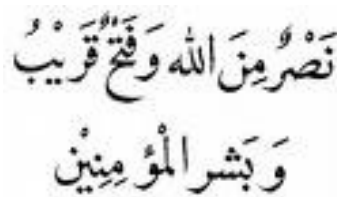 نَصْرٌ مِنَ اللّٰه وَ فَتْحٌ قَرِيْبُ
وَ بَشر الْمُؤ مِنِيْن